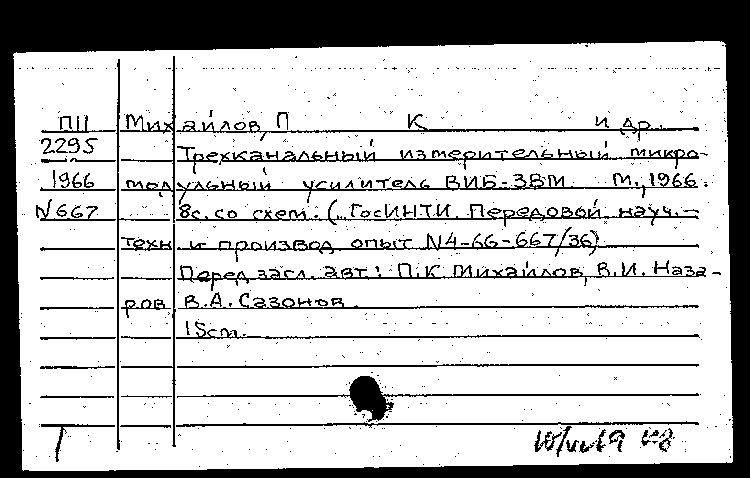 ПII Михайлов, П К и др.
2295 Трехканальный измерительный микро-
1966 модульный усилитель ВИБ-3ВМ. М., 1966.
N667 8с. со схем. (ГосИНТИ. Передовой науч.-
техн. и производ. опыт N4-66-667/36)
Перед загл. авт.: П.К. Михайлов, В.И. Наза-
ров, В.А. Сазонов.
15см.